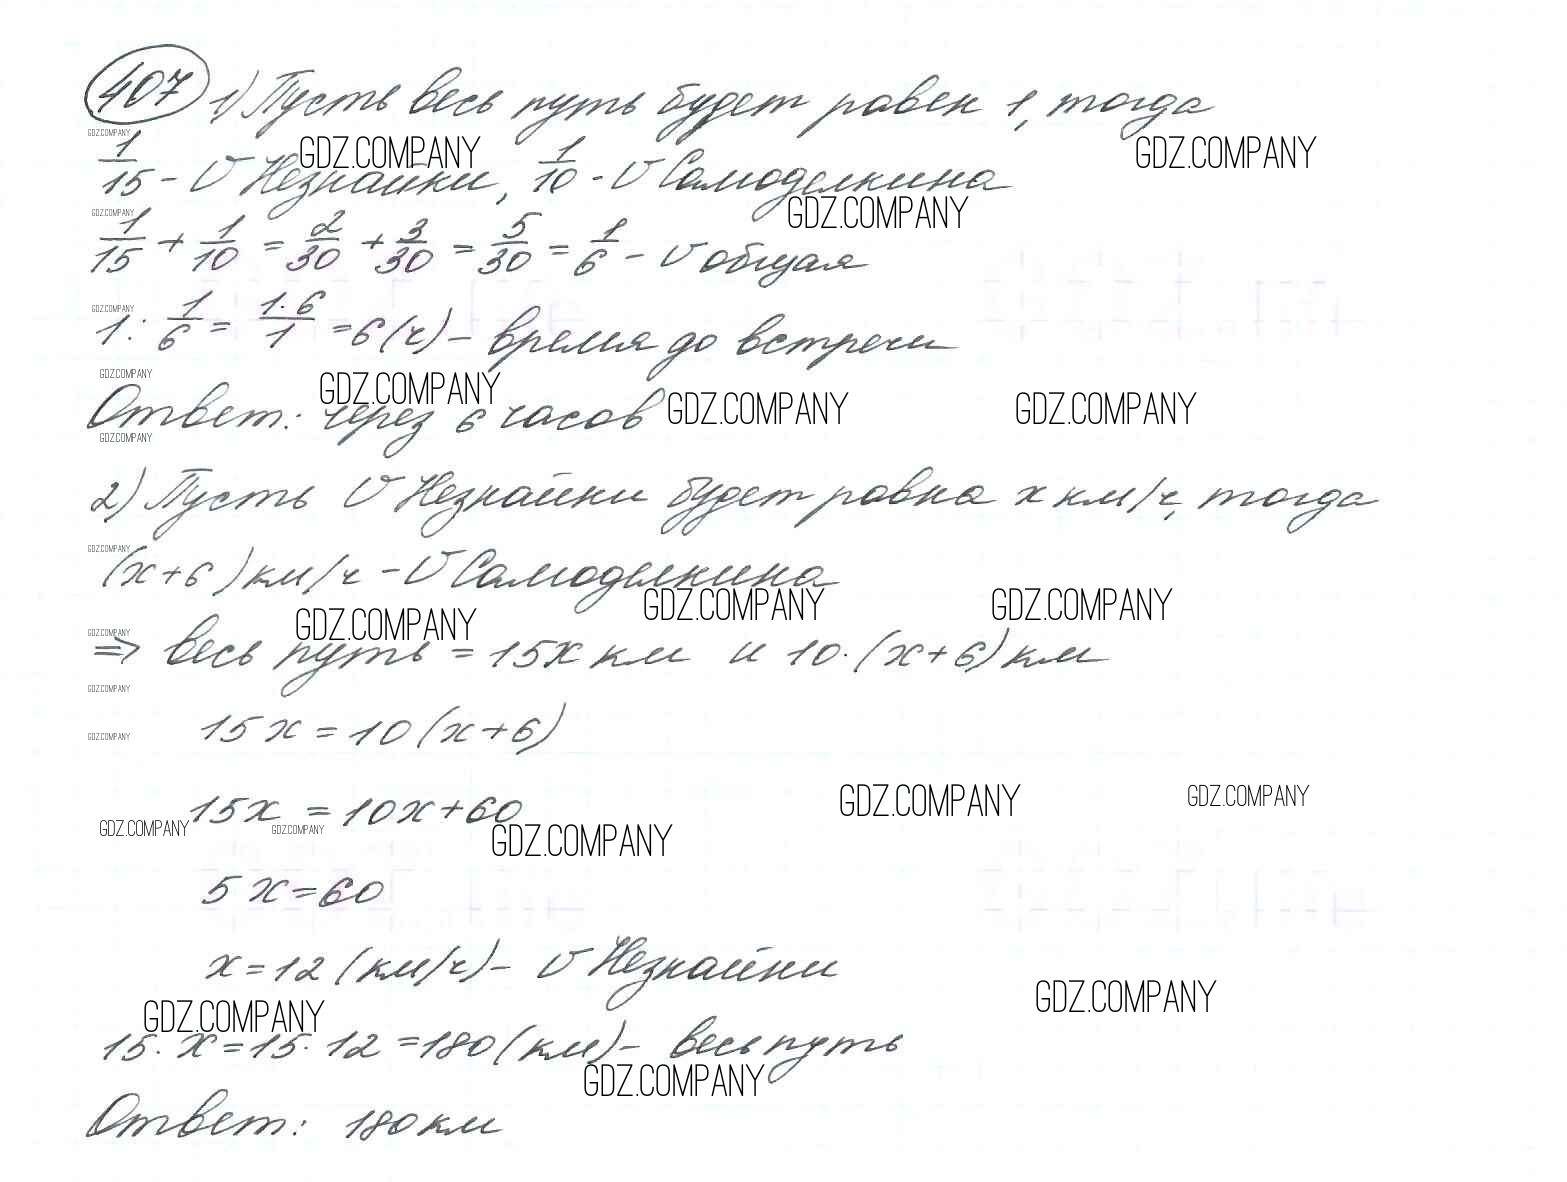 407 1) Пусть весь путь будет равен 1, тогда
GDZ.COMPANY GDZ.COMPANY GDZ.COMPANY
1/15 - v Незнайки, 1/10 - v Самоделкина
GDZ.COMPANY GDZ.COMPANY
1/15 + 1/10 = 2/30 + 3/30 = 5/30 = 1/6 - v общая
GDZ.COMPANY
1 : 1/6 = 1·6/1 = 6 (ч) - время до встречи
GDZ.COMPANY GDZ.COMPANY GDZ.COMPANY GDZ.COMPANY
Ответ: через 6 часов
GDZ.COMPANY
2) Пусть v Незнайки будет равна x км/ч, тогда
GDZ.COMPANY
(x+6) км/ч - v Самоделкина
GDZ.COMPANY GDZ.COMPANY GDZ.COMPANY
GDZ.COMPANY
=> весь путь = 15x км и 10·(x+6) км
GDZ.COMPANY
15x = 10(x+6)
GDZ.COMPANY
15x = 10x+60
GDZ.COMPANY GDZ.COMPANY
GDZ.COMPANY GDZ.COMPANY GDZ.COMPANY
5x=60
x=12 (км/ч) - v Незнайки
GDZ.COMPANY GDZ.COMPANY
15·x=15·12=180 (км) - весь путь
GDZ.COMPANY
Ответ: 180 км